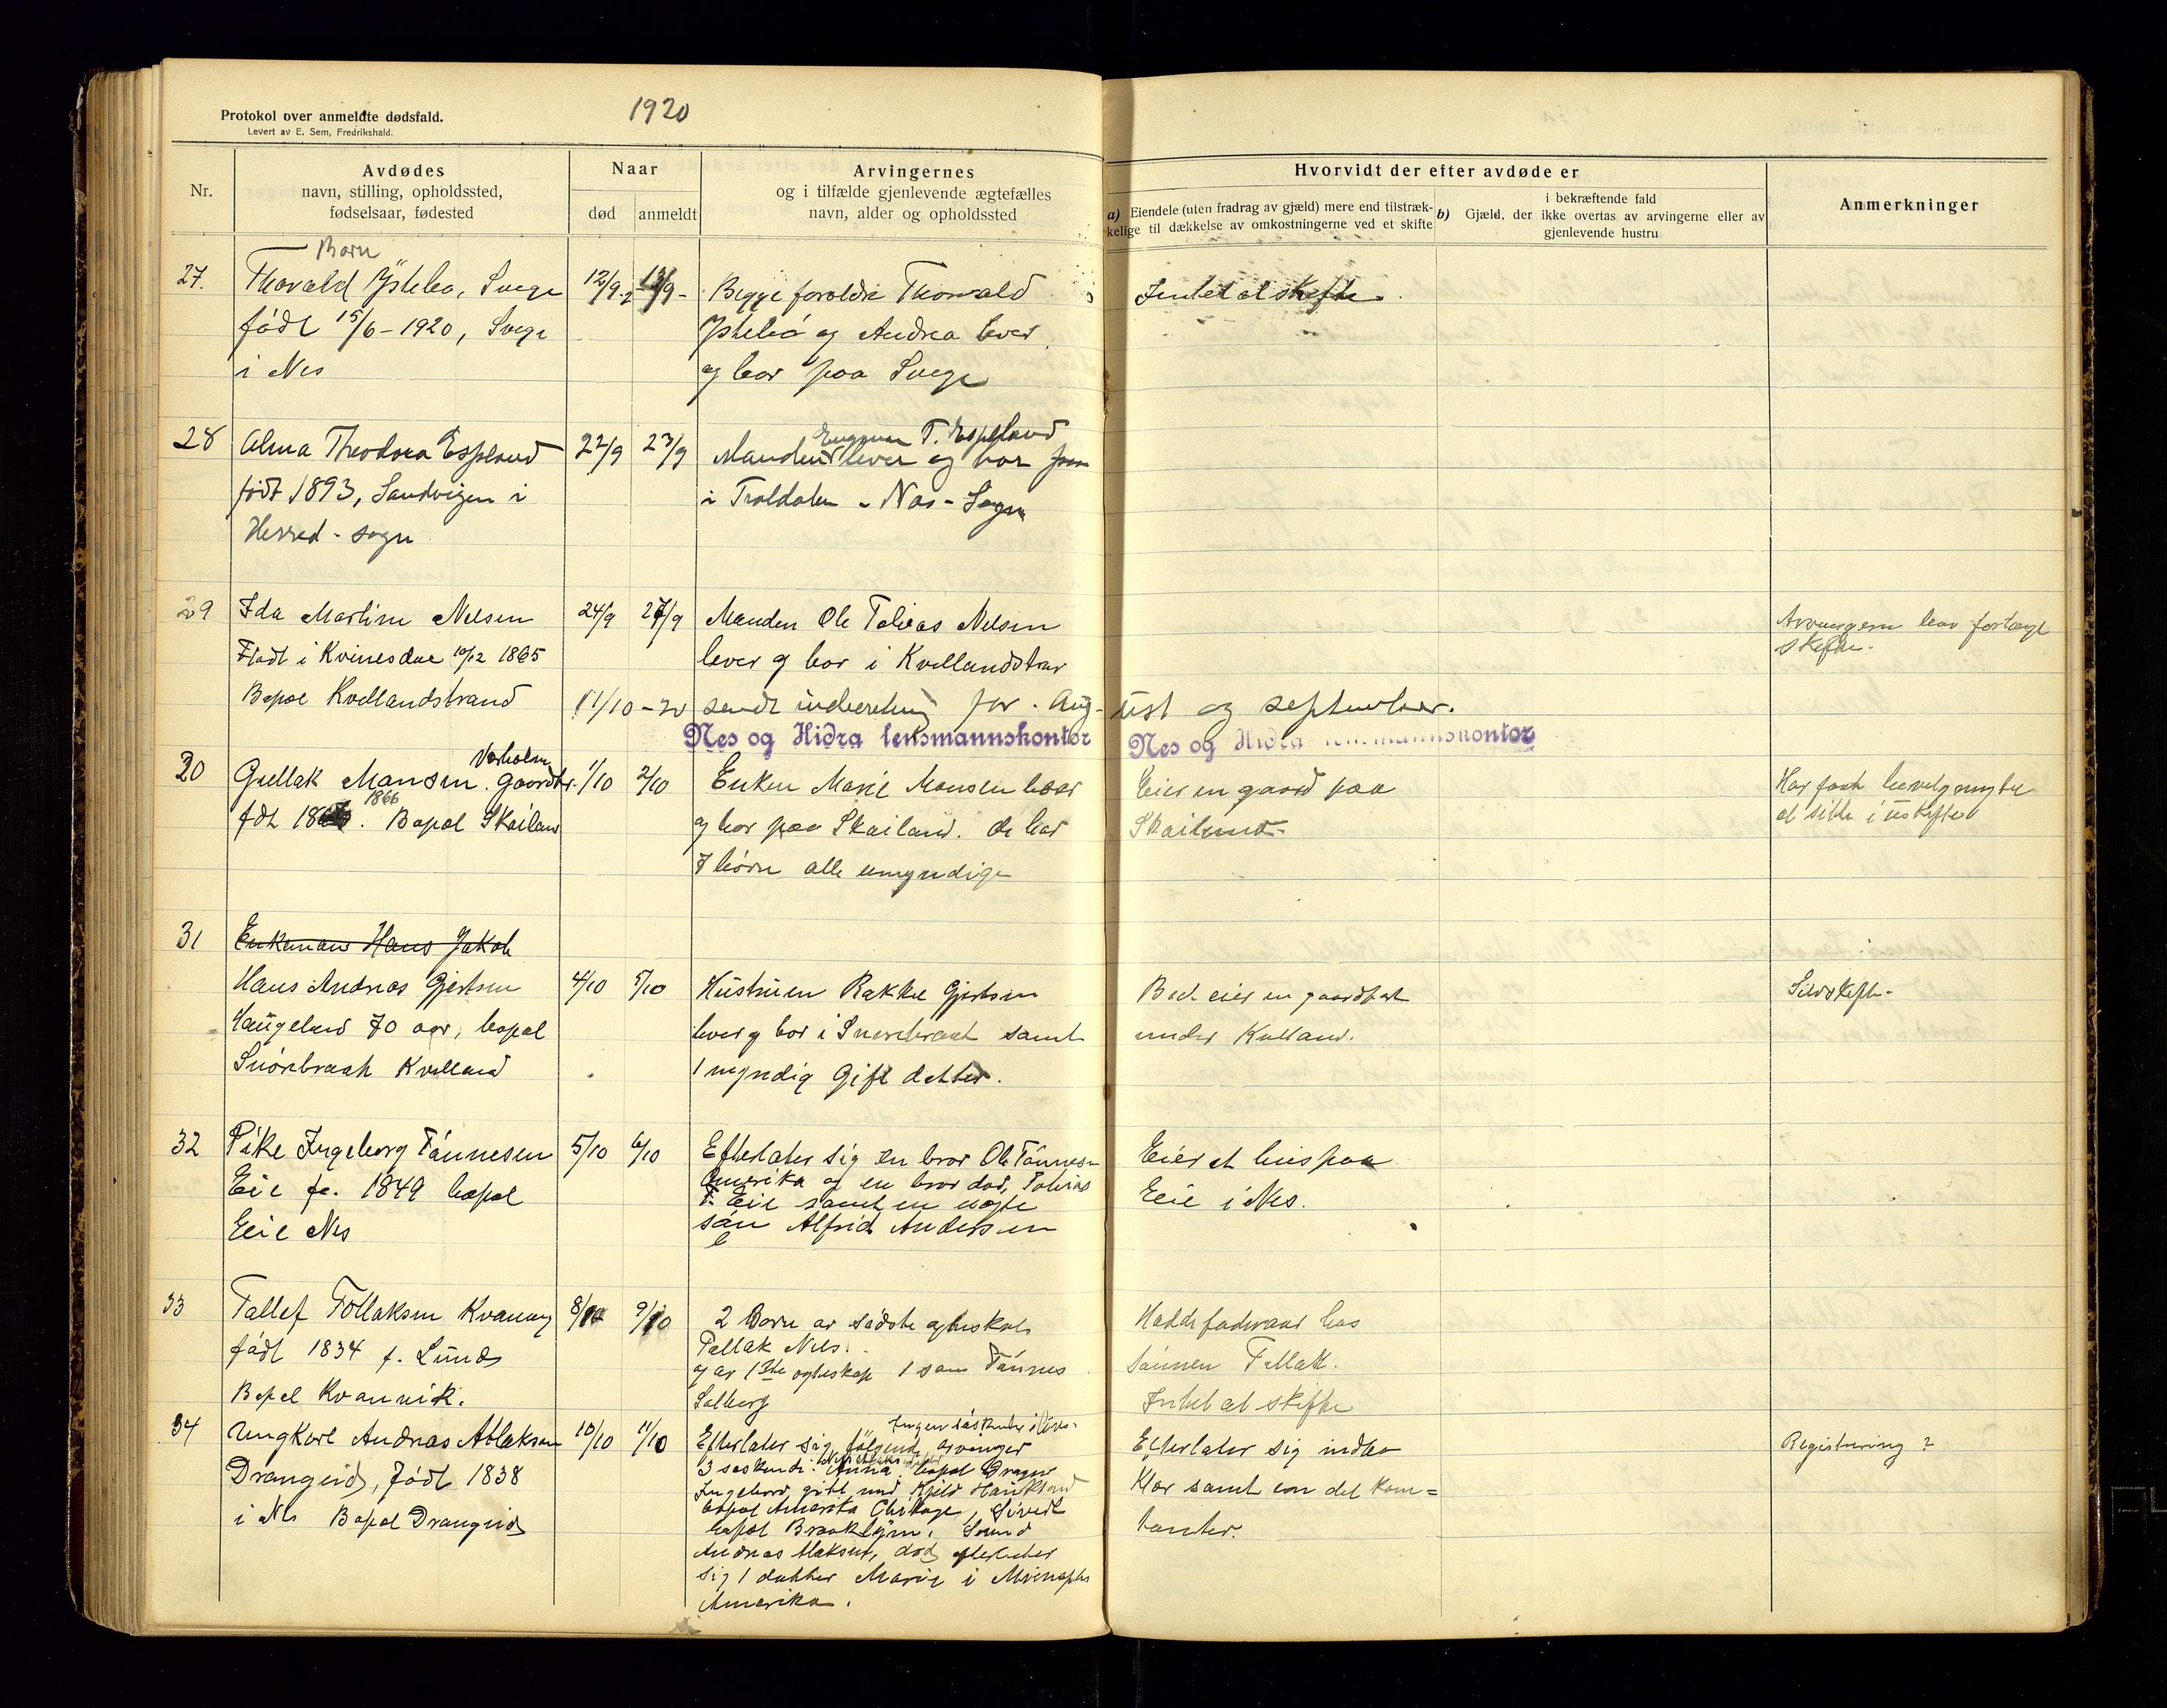 1920
Protokol over anmeldte dødsfald.
Levert av E. Sem, Fredrikshald.
Nr.
Avdødes
navn, stilling, opholdssted,
fødselsaar, fødested
Naar
død
anmeldt
Arvingernes
og i tilfælde gjenlevende ægtefælles
navn, alder og opholdssted
Hvorvidt der efter avdøde er
a) Eiendele (uten fradrag av gjæld) mere end tilstræk-
kelige til dækkelse av omkostningerne ved et skifte
b) Gjæld, der
i bekræftende fald
ikke overtas av arvingerne eller av
gjenlevende hustru
Anmerkninger
Barn
27.
Thorvald Ystebø, Svege
født 15/6-1920, Svege
i Nes
12/9
Begge foreldre Thorvald
Ystebø og Andrea lever
og bor paa Svege
Intet at skifte.
28
Alma Theodora Espland
født 1893, Sandvigen i
Herred-sogn
22/9
23/9
T. Espeland
Manden lever og bor
i Troldalen - Nes-Sogn
29
Ida Martine Nelsen
Født i Kvinesdal 10/12 1865
Bopæl Kvellandstrand
24/9
27/9
Manden Ole Tobias Nelsen
lever og bor i Kvellandstran
Arvingerne har forlangt
skifte.
11/10-20 sendt indberetning for Aug-
ust og september.
Nes og Hidra lensmannskontor
Nes og Hidra lensmannskontor
20
Gullak Mansen. Gaardbr.
1866
fdt. Bopæl Skailand
1/10
2/10
Enken Marie Monsen lever
og bor paa Skailand. De har
7 børn alle umyndige
Eier en gaard paa
Skailand.
Har faat bevilgning til
at sitte i uskiftet
31
Enkeman Hans Jakob
Hans Andreas Gjertsen
Haugeland 70 aar, bopæl
Snørebraat Kvelland
4/10
5/10
Hustruen Rakkel Gjertsen
lever og bor i Snørebraat samt
1 myndig Gift datter.
eier en gaardpart
under Kvelland.
Selvskifte.
32
Pike Ingeborg Tønnesen
Eie f. 1849 bopæl
Eie Nes
5/10
6/10
Efterlater sig en bror Ole Tønnesen
Amerika og en bror død, Tobias
T. Eie samt en uægte
søn Alfred Andersen
Eier et hus paa
Eie i Nes.
33
Tallef Tollaksen Kvannvig
født 1834 f. Lunds
Bopæl Kvannvik.
8/10
9/10
2 Børn av sidste egteskab
Tallak Nils.
og av 1ste egteskap 1 søn Tønnes
Salberg
Hadde føderaad hos
sønnen Tallak.
Intet at skifte
34
Ungkarl Andreas Atlaksen
Drangeid, Født 1838
i Nes Bopæl Drangeid
10/10
11/10
Efterlater sig følgende arvinger
3 søskende: Anna bopæl Drangeid
Ingeborg gift med
bopæl Amerika Chikago, Sivert
bopæl Brooklyn.
Andreas Atlaksen, død efterlater
sig 1 datter Marie i
Amerika.
Efterlater sig indbo
klær samt en del kon=
tanter.
Registrering?